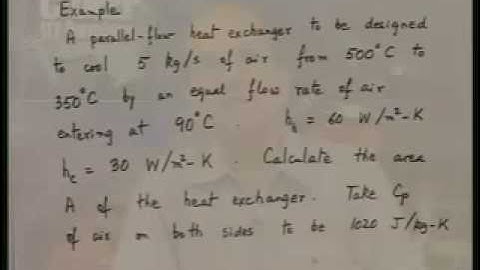 Example
A parallel-flow heat exchanger to be designed
to cool 5 kg/s of air from 500°C to
350°C by an equal flow rate of air
entering at 90°C. h_h = 60 W/m²-K
h_c = 30 W/m²-K. Calculate the area
A of the heat exchanger. Take Cp
of air on both sides to be 1020 J/kg-K